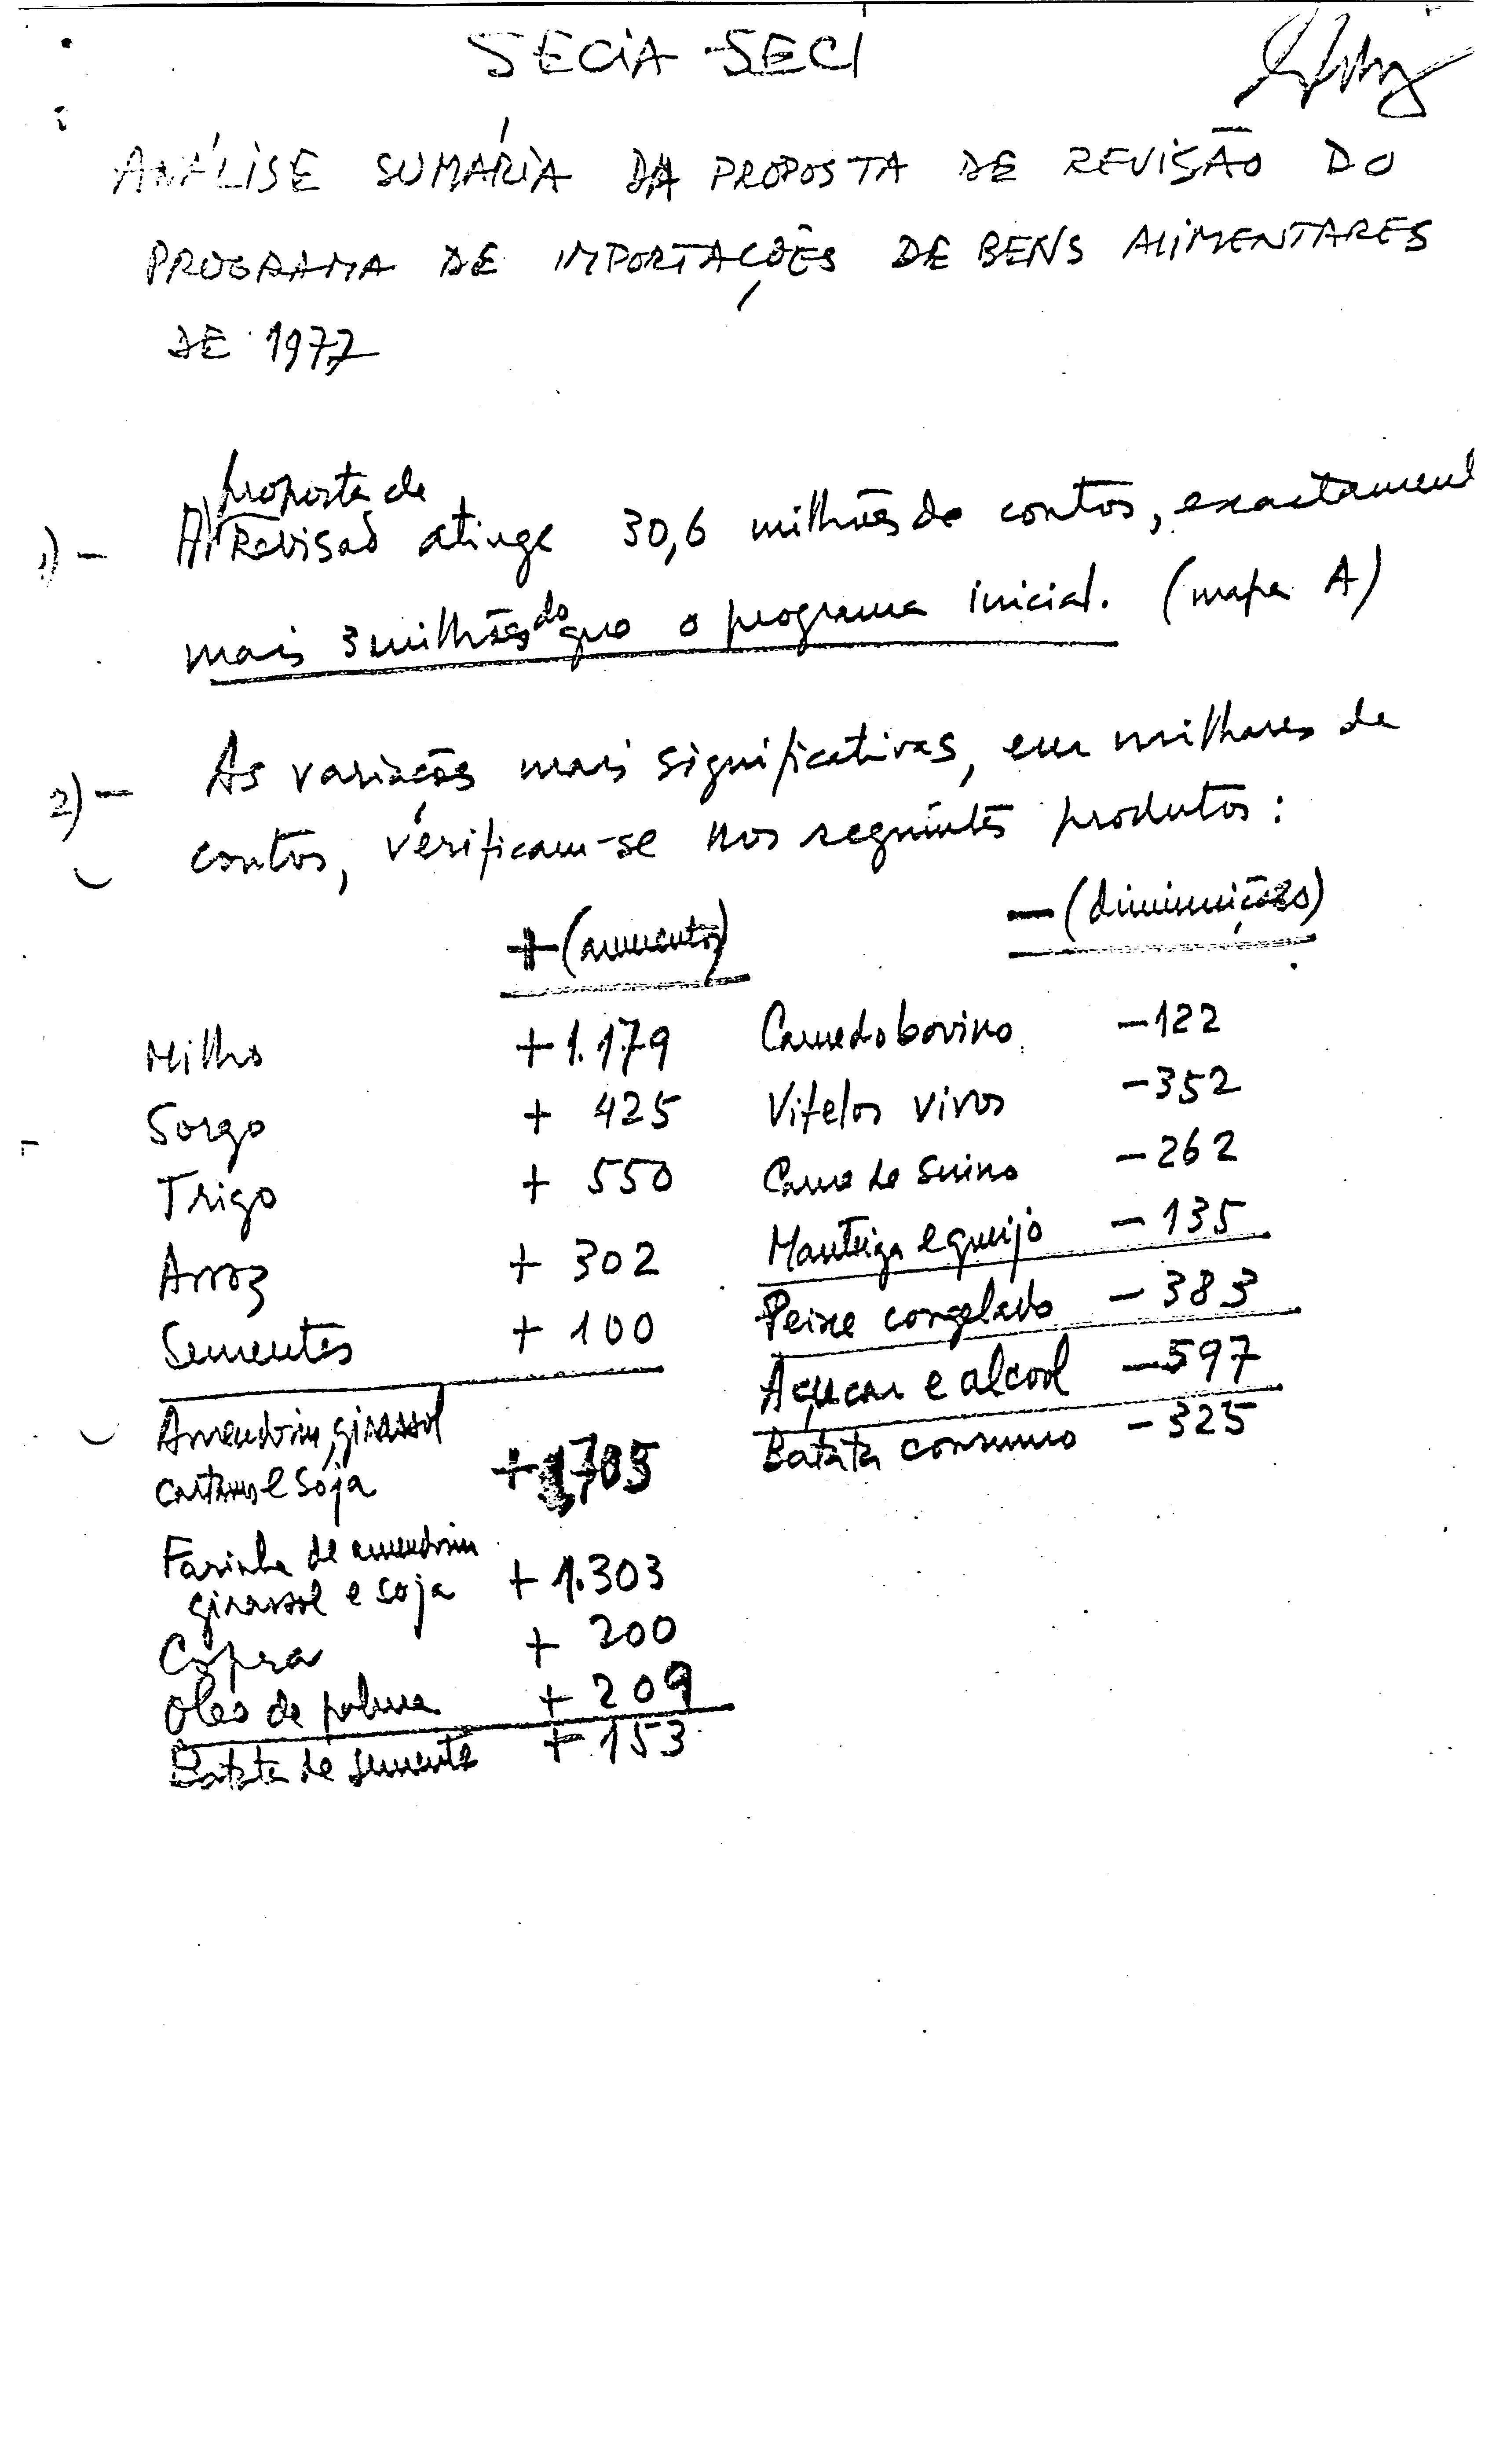 SECIA-SECI
ANÁLISE SUMÁRIA DA PROPOSTA DE REVISÃO DO
PROGRAMA DE IMPORTAÇÕES DE BENS ALIMENTARES
DE 1977
proposta de
1)- A Revisão atinge 30,6 milhões de contos, exactament
mais 3 milhões do que o programa inicial. (mapa A)
2)- As variações mais significativas, em milhares de
contos, verificam-se nos seguintes produtos:
+ (aumentos) - (diminuições)
Milho +1.179 Carne de bovino -122
Sorgo + 425 Vitelos vivos -352
Trigo + 550 Carne de suino -262
Arroz + 302 Manteiga e queijo -135
Sementes + 100 Peixe congelado -383
Amendoim, girassol Açucar e alcool -597
cartamo e soja + 705 Batata consumo -325
Farinha de amendoim
girassol e soja + 1.303
Copra + 200
Oleo de palma + 209
Batata de semente + 153